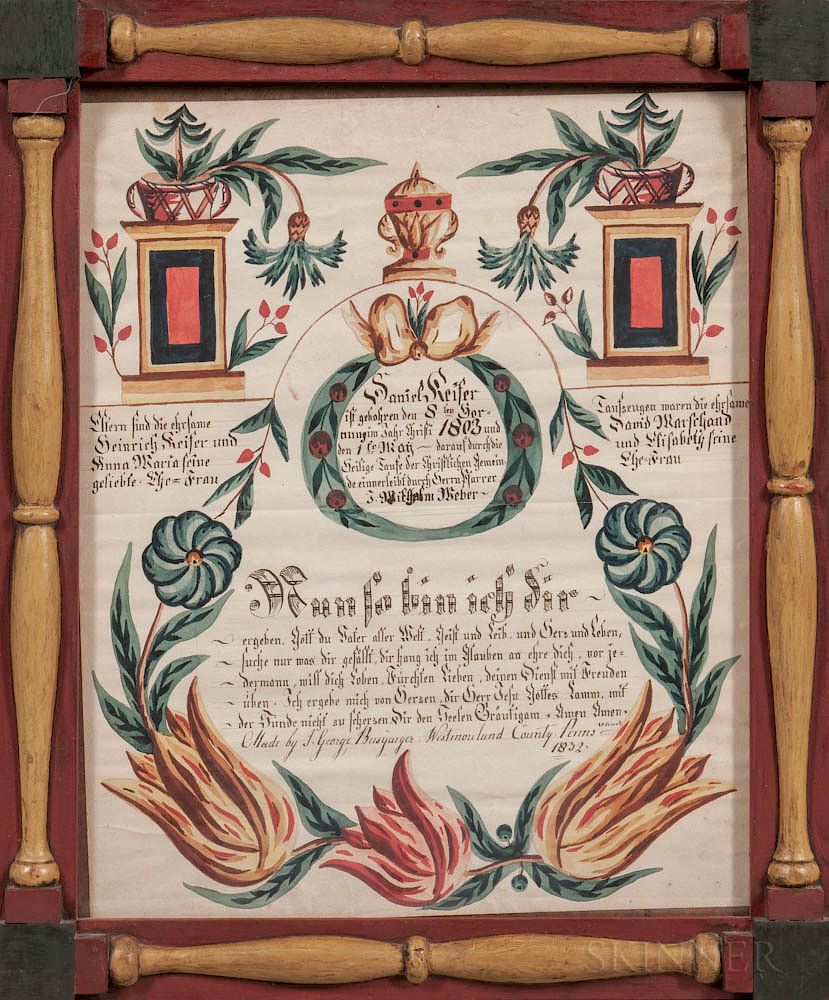 Daniel Keiser
ist gebohren den 8 ten Hor-
nung im Jahr Christi 1803 und
den 1 te May darauf durch die
Heilige Taufe der Christlichen Gemein
de einverleibt durch Herrn Pfarrer
J. Wilhelm Weber
Eltern sind die ehrsame
Heinrich Keiser und
Anna Maria seine
geliebte Ehe=Frau
Taufzeugen waren die ehrsame
David Marschand
und Elisabeth seine
Ehe-Frau
Nun so bin ich dir
ergeben, Gott du Vater aller Welt. Geist und Leib, und Herz und Leben,
suche nur was dir gefällt, dir hang ich im Glauben an ehre dich, vor je=
dermann, will dich Loben, Fürchten Lieben, deinen Dienst mit Freuden
üben. Ich ergebe mich von Herzen, dir Herr Jesu Gottes Lamm, mit
der Sünde nicht zu scherzen. Dir den Seelen Bräutigam. Amen Amen.
Made by J. George Busyaeger Westmoreland County Penns
1832
SKINNER